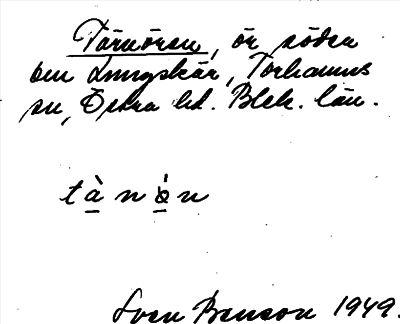 Törnören, ör söder
om Långskär, Torhamns
sn, Östra hd. Blek. län.
tà nò̀n
Sven Benson 1949.